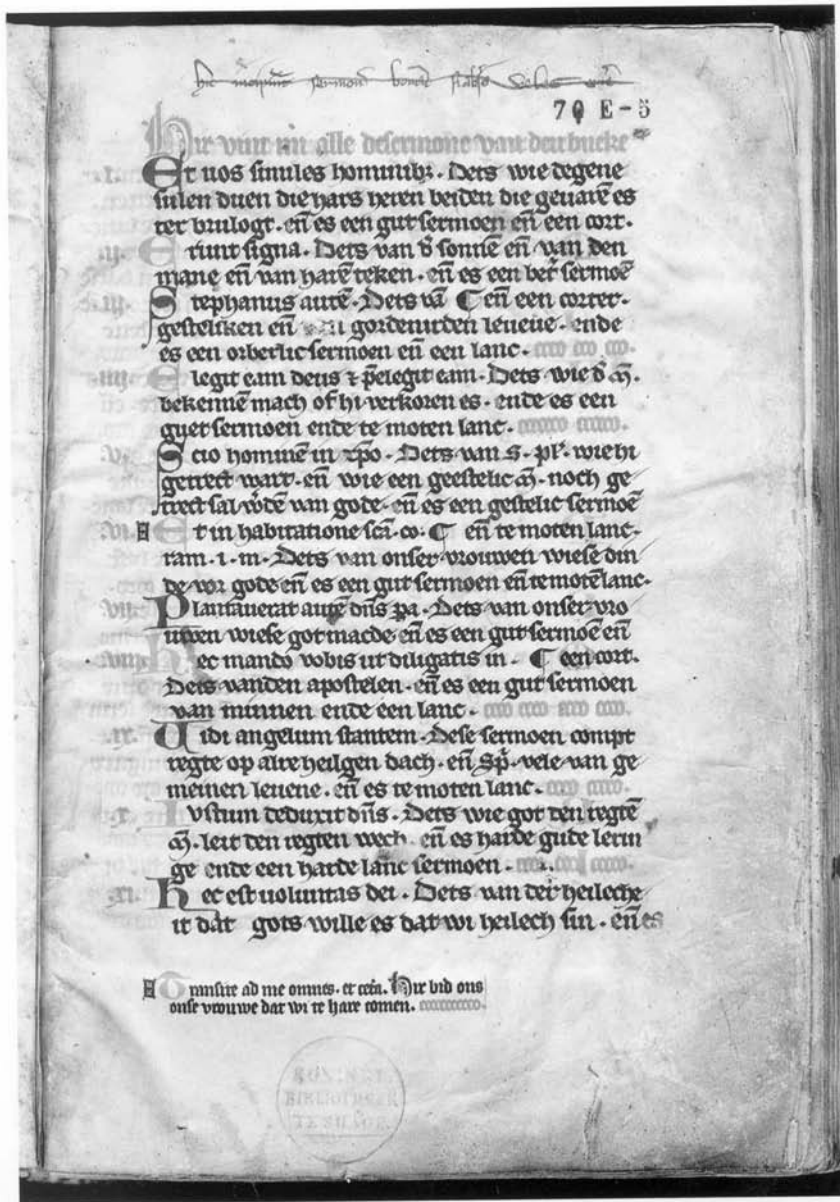 hic incipiunt sermones
70 E-5
Hir vint mi alle desermone van den bucke
.I. Et uos similes hominibꝫ. Dets wie degene
sulen duen die hars heren beiden die geuarē es
ter brulogt. en̄ es een gut sermoen en̄ een cort.
.II. Erunt signa. Dets van d̄ sonnē en̄ van den
manē en̄ van harē teken. en̄ es een sermoē
.III. Stephanus autē. Dets vā ¶ en̄ een corter.
gesteliken en̄ gordenirden leuene. ende
es een orberlic sermoen en̄ een lanc.
.IIII. Elegit eam deus ⁊ p̄elegit eam. Dets wie d̄ m̄.
bekennē mach of hi verkoren es. ende es een
guet sermoen ende te moten lanc.
.V. Scio hominē in xp̄o. Dets van S. pl̄. wie hi
getrect wart. en̄ wie een geestelic m̄. noch ge
trect sal w̄dē van gode. en̄ es een gestelic sermoē
.VI. Et in habitatione sc̄a. co. ¶ en̄ te moten lanc.
ram. i. m. Dets van onser vrouwen wiese din
de vor gode en̄ es een gut sermoen en̄ te motē lanc.
.VII. Plantauerat autē dn̄s pa. Dets van onser vro
uwen wiese got macde en̄ es een gut sermoē en̄
.VIII. Hec mando vobis ut diligatis in. ¶ een cort.
Dets vanden apostelen. en̄ es een gut sermoen
van minnen ende een lanc.
.IX. Uidi angelum stantem. Dese sermoen compt
regte op alre heilgen dach. en̄ sp̄. vele van ge
meinen leuene. en̄ es te moten lanc.
.X. Iustum deduxit dn̄s. Dets wie got den regtē
m̄. leit den regten wech. en̄ es harde gude lerin
ge ende een harde lanc sermoen.
.XI. Hec est uoluntas dei. Dets van der heileche
it dat gots wille es dat wi heilech sin. en̄ es
Transite ad me omnes. et cetā. Hir bid ons
onse vrouwe dat wi te hare comen.
KONINKL.
BIBLIOTHEEK
TE S'HAGE.